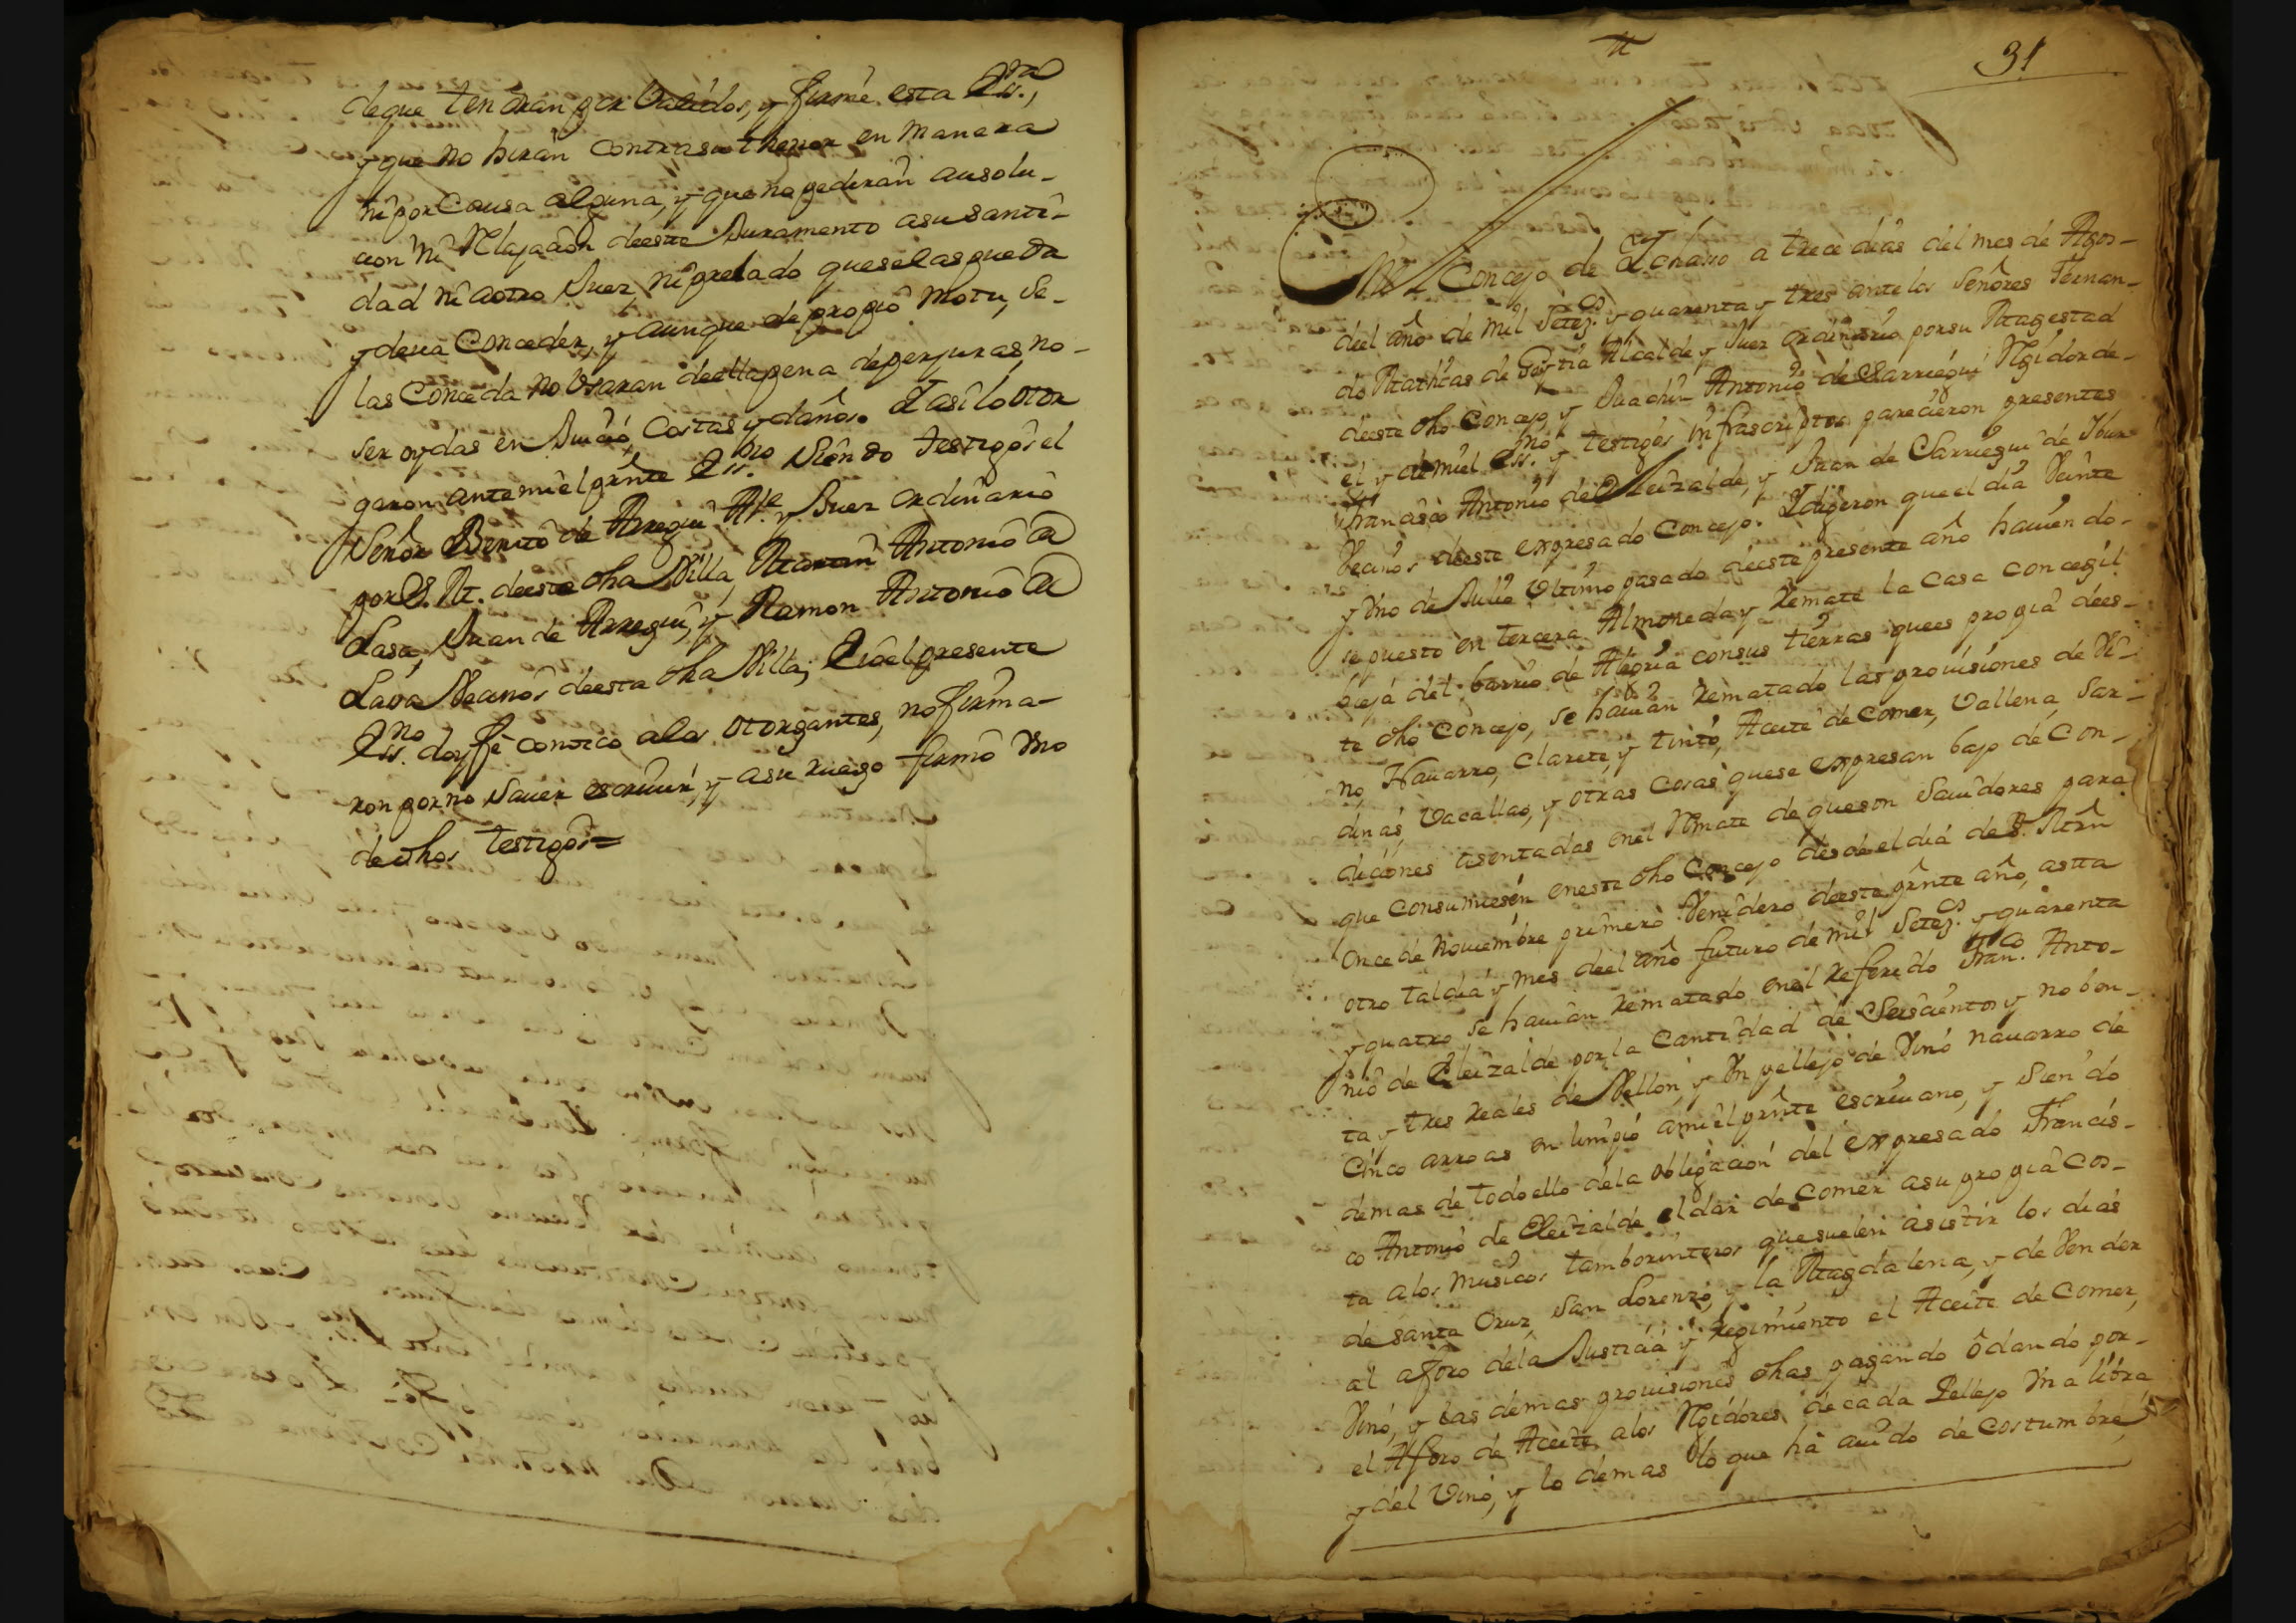 deque tendran por Validos, y firme esta Ess.ra,
y que no hiran contra su thenor en manera
ni por Causa alguna, y que no pediran ausolu-
cion ni Relajacion deeste Juramento a su santi-
dad ni aotro Juez, ni prelado que se las pueda
y deua Conceder, y aunque de propio motu, se
las Conceda no Vsaran deella pena de perjuras, no
ser oydas en Juicio, Costas y daños. Y asi lo otor
garon ante mi el prnte Ess.no siendo testigos el
Señor Benito de Arregui Al.e y Juez ordinario
por S. M. deesta dha Villa, Martin Antonio de
Lasa, Juan de Arregui, y Ramon Antonio de
Lava Vecinos deesta dha Villa; E io el presente
Ess.no doy fe conozco alos otorgantes, no firma-
ron por no sauer escriuir, y a su ruego firmó Vno
de dhos testigos=
31
En el Concejo de a trece dias del mes de Agos-
deel año de mil Setez.os y quarenta y tres ante los Señores Fernan-
do Mathias de Alcalde y Juez ordinario por su Magestad
deeste dho Concejo, y Juachin Antonio de Sarriegui Rexidor de-
el y de mi el Ess.no y testigos infrascriptos parecieron presentes
Francisco Antonio de Eleizalde, y Juan de Sarriegui de
Vecinos deeste expresado Concejo. Y digeron que el dia Veinte
y Vno de Julio Vltimo pasado deeste presente año hauiendo-
se puesto en tercera Almoneda y Remate la Casa concegil
del barrio de Alegria con sus tierras que es propia dees-
te dho Concejo, se hauian rematado las prouisiones de Vi-
no, Nauarro, Clarete, y tinto, Aceite de Comer, Vallena, Sar-
dinas, Vacallao, y otras cosas que se expresan bajo de Con-
diciones asentadas en el Remate de que son Sauidores para
que consumiesen en este dho Concejo desde el dia de S. Mrn
once de Nouiembre primero Venidero deeste prnte año, asta
otro tal dia y mes deel año futuro de mil Setez.os y quarenta
y quatro se hauian Rematado en el referido Fran.co Anto-
nio de Eleizalde por la Cantidad de Seiscientos y noben-
ta y tres reales de Vellon, y Vn pellejo de Vino nauarro de
Cinco arroas en limpio a mi el prnte escriuano, y siendo
demas de todo ello dela obligacion del expresado Francis-
co Antonio de Eleizalde el dar de Comer asu propia cos-
ta alos musicos tamborinteros que suelen asistir los dias
de santa Cruz, san Lorenzo, y la Magdalena, y de Vender
al aforo dela Justicia y Regimiento el Aceite de Comer,
Vino, y las demas prouisiones dhas, pagando o dando por-
el Aforo de Aceite, alos Regidores, de cada Pellejo Vna libra
y del Vino, y lo demas lo que ha auido de Costumbre,